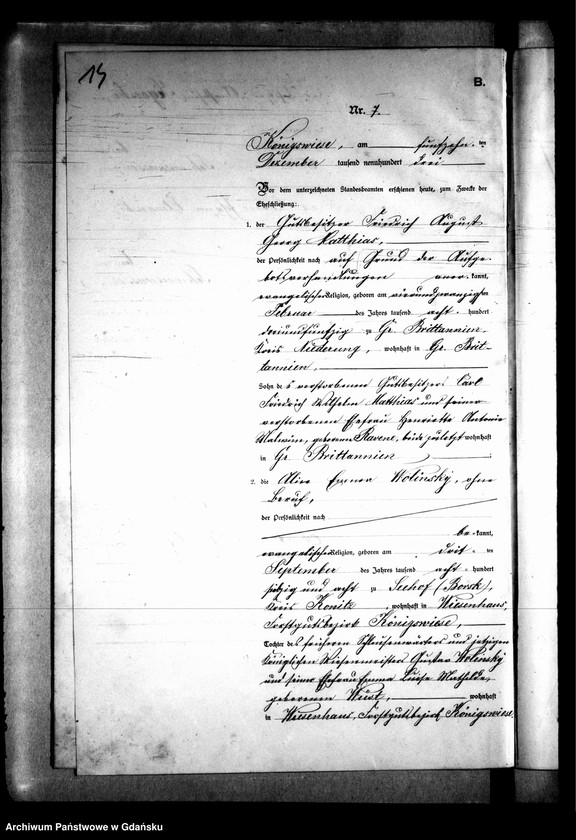 15
B.
Nr. 7.
Königswiese, am fünfzehn ten
Dezember tausend neunhundert drei
Vor dem unterzeichneten Standesbeamten erschienen heute, zum Zwecke der
Eheschließung:
1. der Gutsbesitzer Friedrich August
Georg Matthias,
der Persönlichkeit nach auf Grund der Aufge-
botsverhandlungen aner kannt,
evangelischer Religion, geboren am vierundzwanzigsten
Februar des Jahres tausend acht hundert
dreiundfünfzig zu Gr. Brittannien,
Kreis Niederung, wohnhaft in Gr. Brit-
tannien,
Sohn des verstorbenen Gutsbesitzers Carl
Friedrich Wilhelm Matthias und seiner
verstorbenen Ehefrau Henriette Antonie
Malwine, geborene Ravene, beide zuletzt wohnhaft
in Gr. Brittannien ;
2. die Emma Wolinsky, ohne
Beruf,
der Persönlichkeit nach
be kannt,
evangelischer Religion, geboren am drit ten
September des Jahres tausend acht hundert
siebzig und acht zu Seehof (Borsk),
Kreis Konitz, wohnhaft in Wiesenhaus,
Forstgutsbezirk Königswiese,
Tochter des früheren Schleusenwärters und jetzigen
Königlichen Wiesenmeisters Gustav Wolinsky
und seiner Ehefrau Emma Luise Mathilde,
geborenen wohnhaft
in Wiesenhaus, Forstgutsbezirk Königswiese.
Archiwum Państwowe w Gdańsku